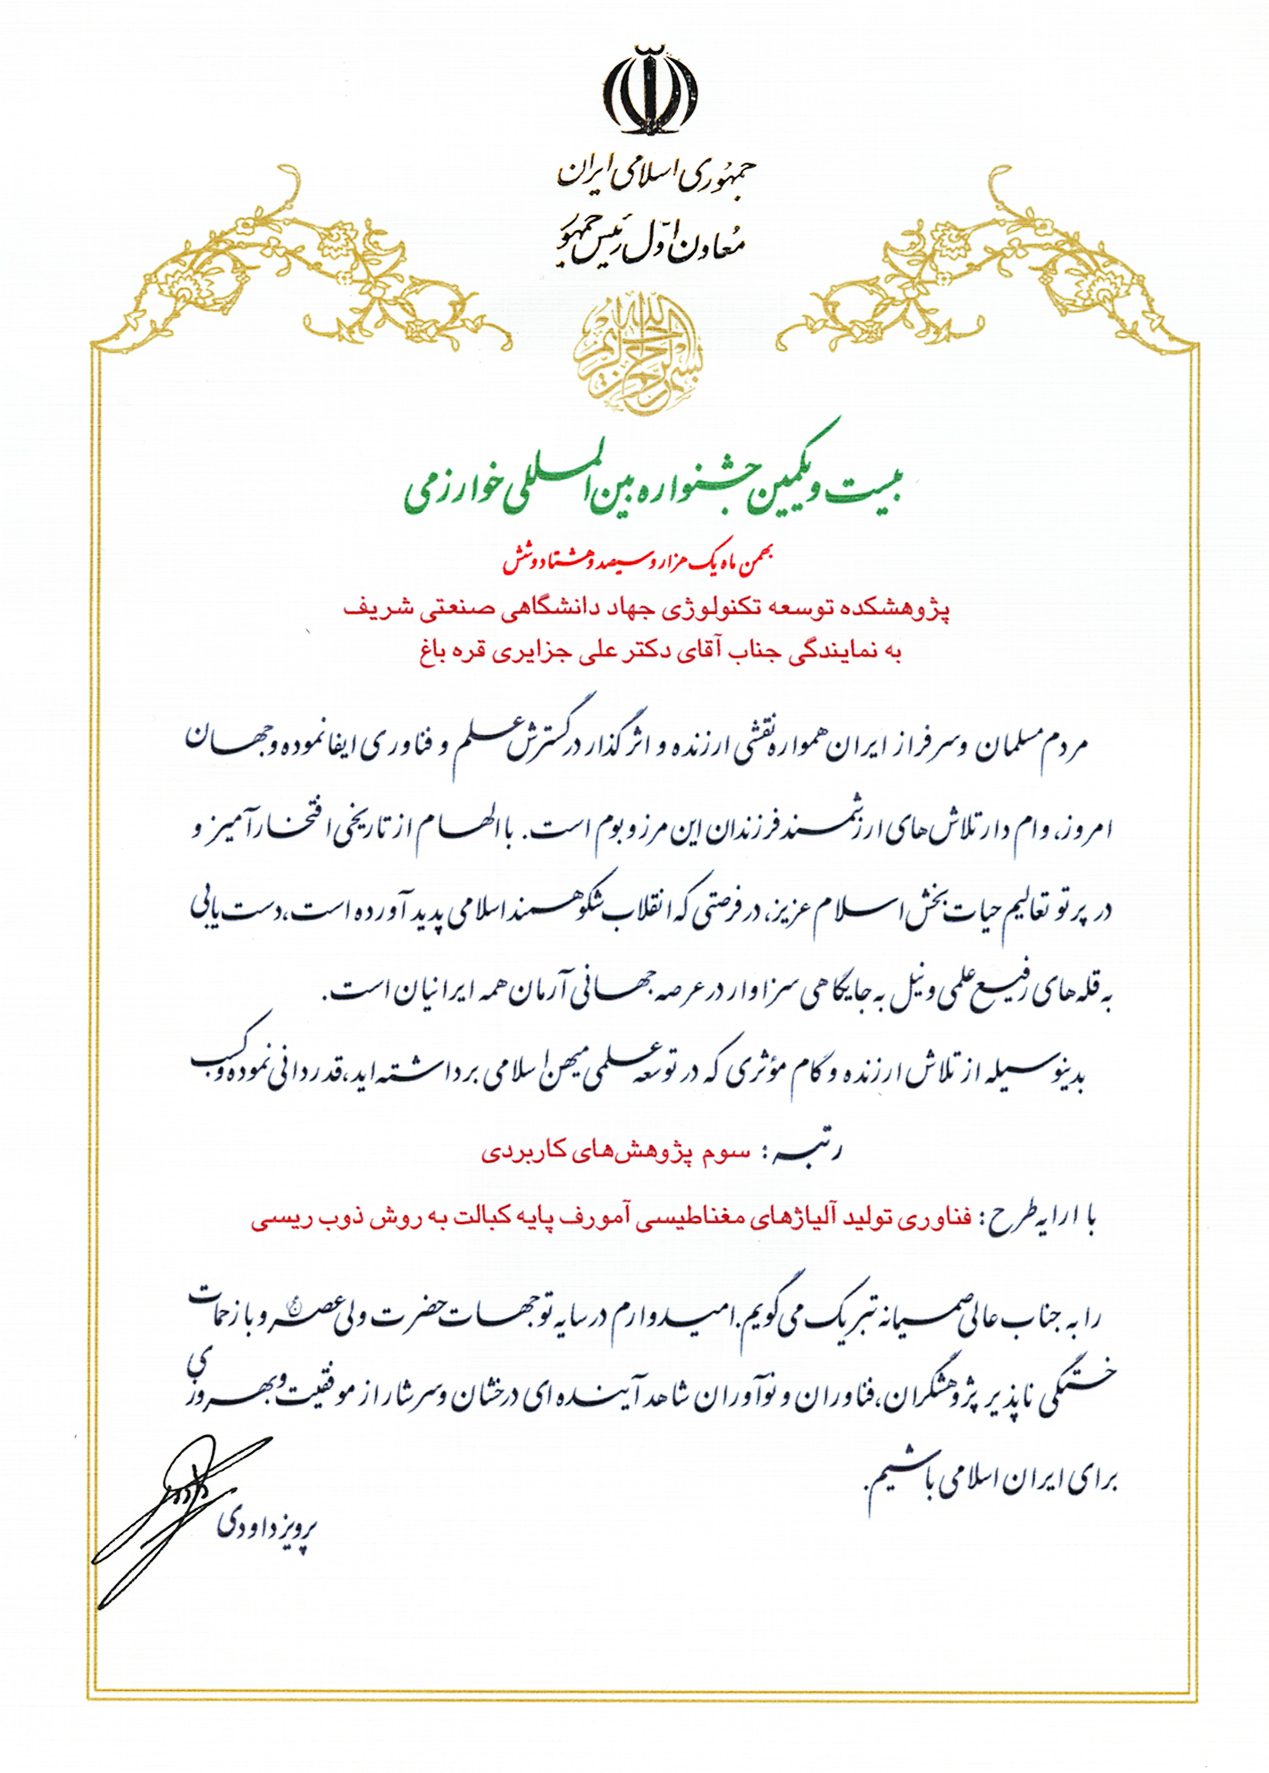 جمهوری اسلامی ایران
معاون اول رئیس جمهور
بسم الله الرحمن الرحیم
بیست و یکمین جشنواره بین المللی خوارزمی
بهمن ماه یک هزار و سیصد و هشتاد و شش
پژوهشکده توسعه تکنولوژی جهاد دانشگاهی صنعتی شریف
به نمایندگی جناب آقای دکتر علی جزایری قره باغ
مردم مسلمان و سرفراز ایران همواره نقشی ارزنده و اثر گذار در گسترش علم و فناوری ایفا نموده و جهان
امروز، وام دار تلاش های ارزشمند فرزندان این مرز و بوم است. با الهام از تاریخی افتخارآمیز و
در پرتو تعالیم حیات بخش اسلام عزیز، در فرصتی که انقلاب شکوهمند اسلامی پدید آورده است، دست یابی
به قله های رفیع علمی و نیل به جایگاهی سزاوار در عرصه جهانی آرمان همه ایرانیان است.
بدینوسیله از تلاش ارزنده و گام مؤثری که در توسعه علمی میهن اسلامی برداشته اید، قدردانی نموده و کسب
رتبه: سوم پژوهش‌های کاربردی
با ارایه طرح: فناوری تولید آلیاژهای مغناطیسی آمورف پایه کبالت به روش ذوب ریسی
را به جناب عالی صمیمانه تبریک می گویم. امیدوارم در سایه توجهات حضرت ولی عصر (عج) و با زحمات
خستگی ناپذیر پژوهشگران، فناوران و نوآوران شاهد آینده ای درخشان و سرشار از موفقیت و بهروزی
برای ایران اسلامی باشیم.
پرویز داودی